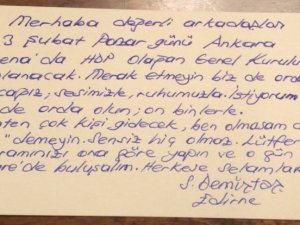 Merhaba değerli arkadaşlar
3 Şubat Pazar günü Ankara
ena'da HDP Olağan Genel Kurulu
planacak. Merak etmeyin biz de orda
cağız; sesimizle, ruhumuzla. İstiyorum
de orda olun; on binlerle.
ten çok kişi gidecek, ben olmasam d
" demeyin. Sensiz hiç olmaz. Lütfen
ramınızı ona göre yapın ve o gün
de buluşalım. Herkese selamlar
S. Demirtaş
Edirne